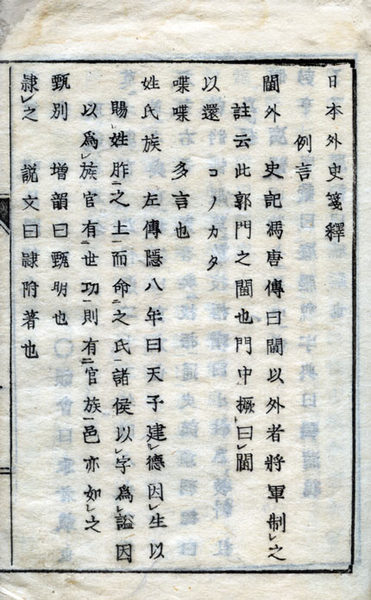 日本外史箋釋
例言
閫外 史記馮唐傳曰閫以外者將軍制レ之
註云此郭門之閫也門中橛曰レ閫
以還 コノカタ
喋喋 多言也
姓氏族 左傳隱八年曰天子建レ德因レ生以
賜レ姓胙二之土一而命二之氏一諸侯以レ字為レ謚因
以為レ族官有二世功一則有二官族一邑亦如レ之
甄別 增韻曰甄明也
隷レ之 説文曰隷附著也